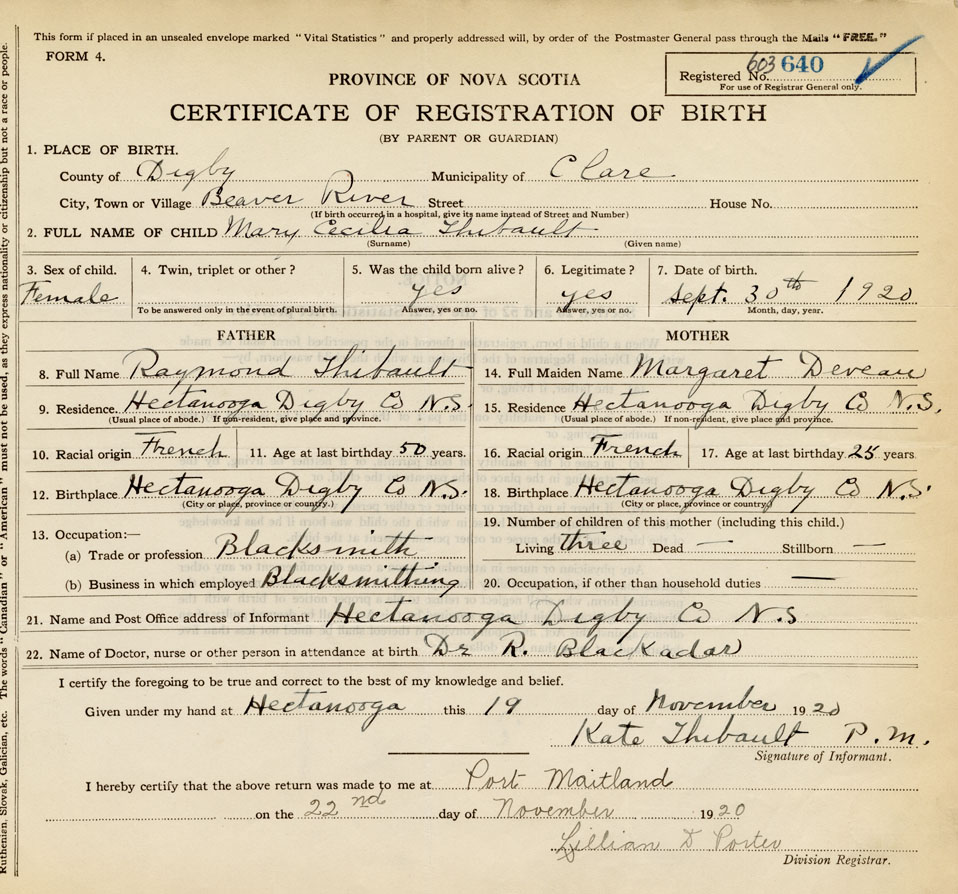 This form if placed in an unsealed envelope marked "Vital Statistics" and properly addressed will, by order of the Postmaster General pass through the Mails "FREE."
FORM 4.
603 640
Registered No.
For use of Registrar General only.
PROVINCE OF NOVA SCOTIA
CERTIFICATE OF REGISTRATION OF BIRTH
(BY PARENT OR GUARDIAN)
1. PLACE OF BIRTH.
County of Digby Municipality of Clare
City, Town or Village Beaver River Street House No.
(If birth occurred in a hospital, give its name instead of Street and Number)
2. FULL NAME OF CHILD Mary Cecilia Thibault
(Surname) (Given name)
3. Sex of child. 4. Twin, triplet or other? 5. Was the child born alive? 6. Legitimate? 7. Date of birth.
Female yes yes Sept. 30th 1920
To be answered only in the event of plural birth. Answer, yes or no. Answer, yes or no. Month, day, year.
FATHER MOTHER
8. Full Name Raymond Thibault 14. Full Maiden Name Margaret Deveau
9. Residence Hectanooga Digby Co N.S. 15. Residence Hectanooga Digby Co N.S.
(Usual place of abode.) If non-resident, give place and province. (Usual place of abode.) If non-resident, give place and province.
10. Racial origin French 11. Age at last birthday 50 years. 16. Racial origin French 17. Age at last birthday 25 years
12. Birthplace Hectanooga Digby Co N.S. 18. Birthplace Hectanooga Digby Co N.S.
(City or place, province or country.) (City or place, province or country)
13. Occupation:— 19. Number of children of this mother (including this child.)
(a) Trade or profession Blacksmith Living three Dead — Stillborn —
(b) Business in which employed Blacksmithing 20. Occupation, if other than household duties —
21. Name and Post Office address of Informant Hectanooga Digby Co N.S
22. Name of Doctor, nurse or other person in attendance at birth Dr R. Blackadar
I certify the foregoing to be true and correct to the best of my knowledge and belief.
Given under my hand at Hectanooga this 19 day of November 1920
Kate Thibault P.M.
Signature of Informant.
I hereby certify that the above return was made to me at Port Maitland
on the 22nd day of November 1920
Lillian D Porter
Division Registrar.
Ruthenian, Slovak, Galician, etc. The words "Canadian" or "American" must not be used, as they express nationality or citizenship but not a race or people.